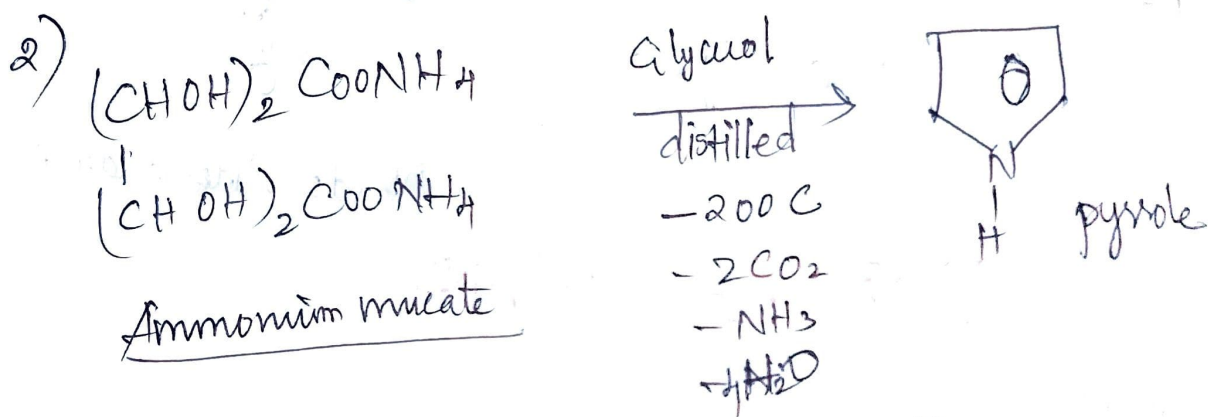 2)
(CHOH)₂ COONH₄
(CHOH)₂ COONH₄
Ammonium mucate
Glycerol
distilled
-200 C
- 2CO₂
- NH₃
-4H₂O
N
H
pyrrole